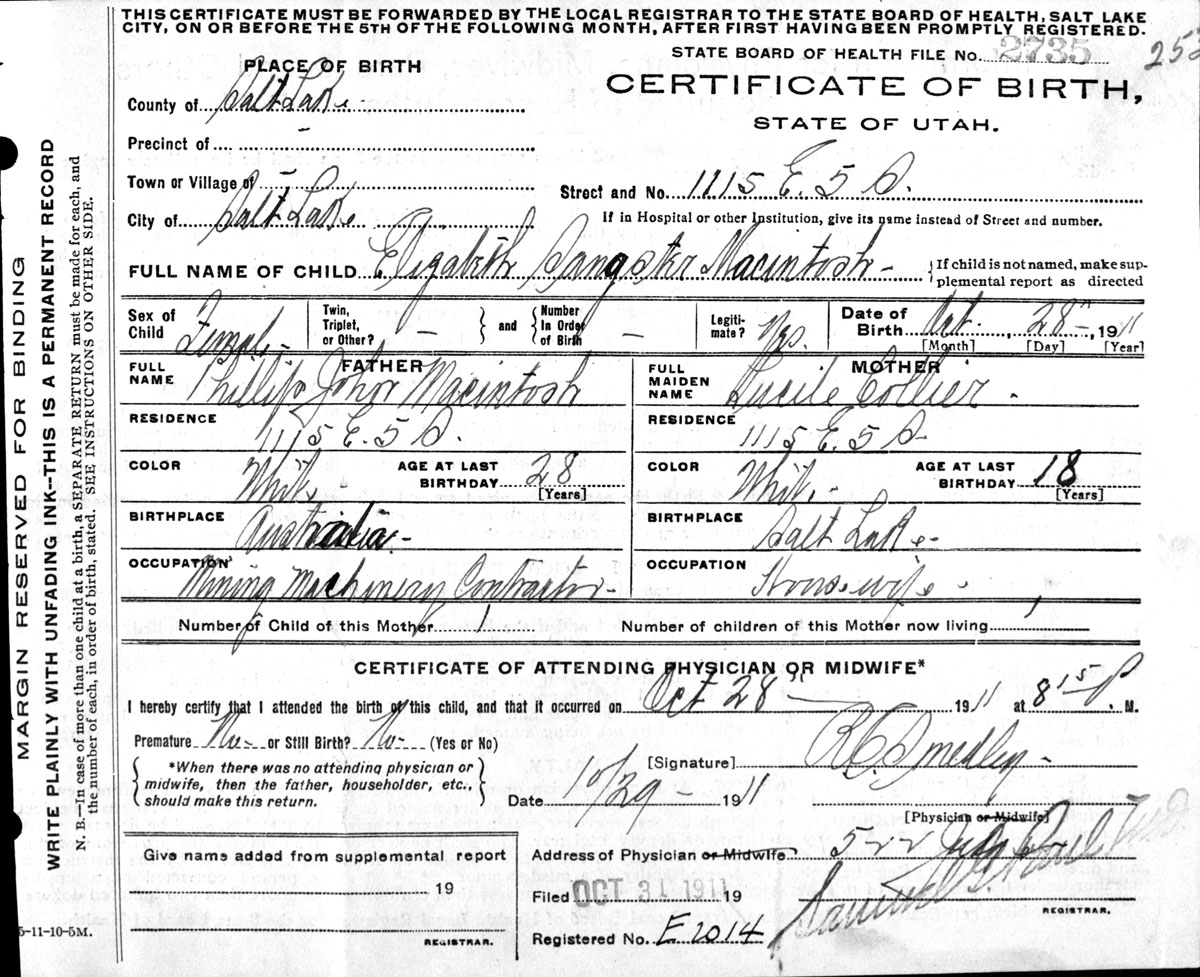 THIS CERTIFICATE MUST BE FORWARDED BY THE LOCAL REGISTRAR TO THE STATE BOARD OF HEALTH, SALT LAKE
CITY, ON OR BEFORE THE 5TH OF THE FOLLOWING MONTH, AFTER FIRST HAVING BEEN PROMPTLY REGISTERED.
STATE BOARD OF HEALTH FILE No. 2735 253
PLACE OF BIRTH
CERTIFICATE OF BIRTH,
STATE OF UTAH.
County of Salt Lake
Precinct of -
Town or Village of -
Street and No. 1115 E. 5 S.
City of Salt Lake
If in Hospital or other Institution, give its name instead of Street and number.
FULL NAME OF CHILD Elizabeth Sangster Macintosh - {If child is not named, make sup-
plemental report as directed
Sex of Child Female - Twin, Triplet, or Other? - } and { Number In Order of Birth - Legiti-mate? Yes. Date of Birth Oct. 28th - 1911
[Month] [Day] [Year]
FATHER MOTHER
FULL NAME Phillip John Macintosh FULL MAIDEN NAME Lucile Collier -
RESIDENCE 1115 E. 5 S. RESIDENCE 1115 E. 5 S.
COLOR White. AGE AT LAST BIRTHDAY 28 [Years] COLOR White. AGE AT LAST BIRTHDAY 18 [Years]
BIRTHPLACE Australia - BIRTHPLACE Salt Lake -
OCCUPATION Mining Machinery Contractor - OCCUPATION Housewife -
Number of Child of this Mother 1 Number of children of this Mother now living 1
CERTIFICATE OF ATTENDING PHYSICIAN OR MIDWIFE*
I hereby certify that I attended the birth of this child, and that it occurred on Oct 28th 1911 at 8 15 P. M.
Premature No - or Still Birth? No - (Yes or No)
{ *When there was no attending physician or
midwife, then the father, householder, etc.,
should make this return. }
[Signature] R C Smedley -
Date 10/29 - 1911
[Physician or Midwife]
Give name added from supplemental report
19
REGISTRAR.
Address of Physician or Midwife 522
Filed OCT 31 1911 19
REGISTRAR.
Registered No. E 2014
5-11-10-5M.
MARGIN RESERVED FOR BINDING
WRITE PLAINLY WITH UNFADING INK--THIS IS A PERMANENT RECORD
N. B.--In case of more than one child at a birth, a SEPARATE RETURN must be made for each, and
the number of each, in order of birth, stated. SEE INSTRUCTIONS ON OTHER SIDE.